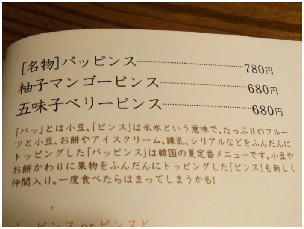 [名物]パッピンス 780円
柚子マンゴーピンス 680円
五味子ベリーピンス 680円
『パッ』とは小豆、『ピンス』は氷水という意味で、たっぷりのフルー
ツと小豆、お餅やアイスクリーム、練乳、シリアルなどをふんだんに
トッピングした『パッピンス』は韓国の夏定番メニューです。小豆や
お餅かわりに果物をふんだんにトッピングした『ピンス』も新しく
仲間入り。一度食べたらはまってしまうかも!